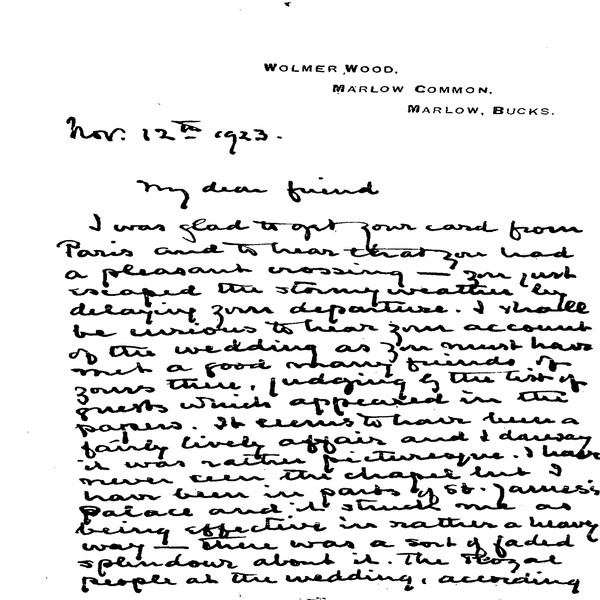 WOLMER WOOD,
MARLOW COMMON,
MARLOW, BUCKS.
Nov. 12th 1923.
My dear friend
I was glad to get your card from
Paris and to hear that you had
a pleasant crossing — you just
escaped the stormy weather by
delaying your departure. I shall
be curious to hear your account
of the wedding as you must have
met a good many friends of
yours there, judging by the list of
guests which appeared in the
papers. It seems to have been a
fairly lively affair and I daresay
it was rather picturesque. I have
never seen the chapel but I
have been in parts of St. James's
Palace and it struck me as
being effective in rather a heavy
way — there was a sort of faded
splendour about it. The Royal
people at the wedding, according